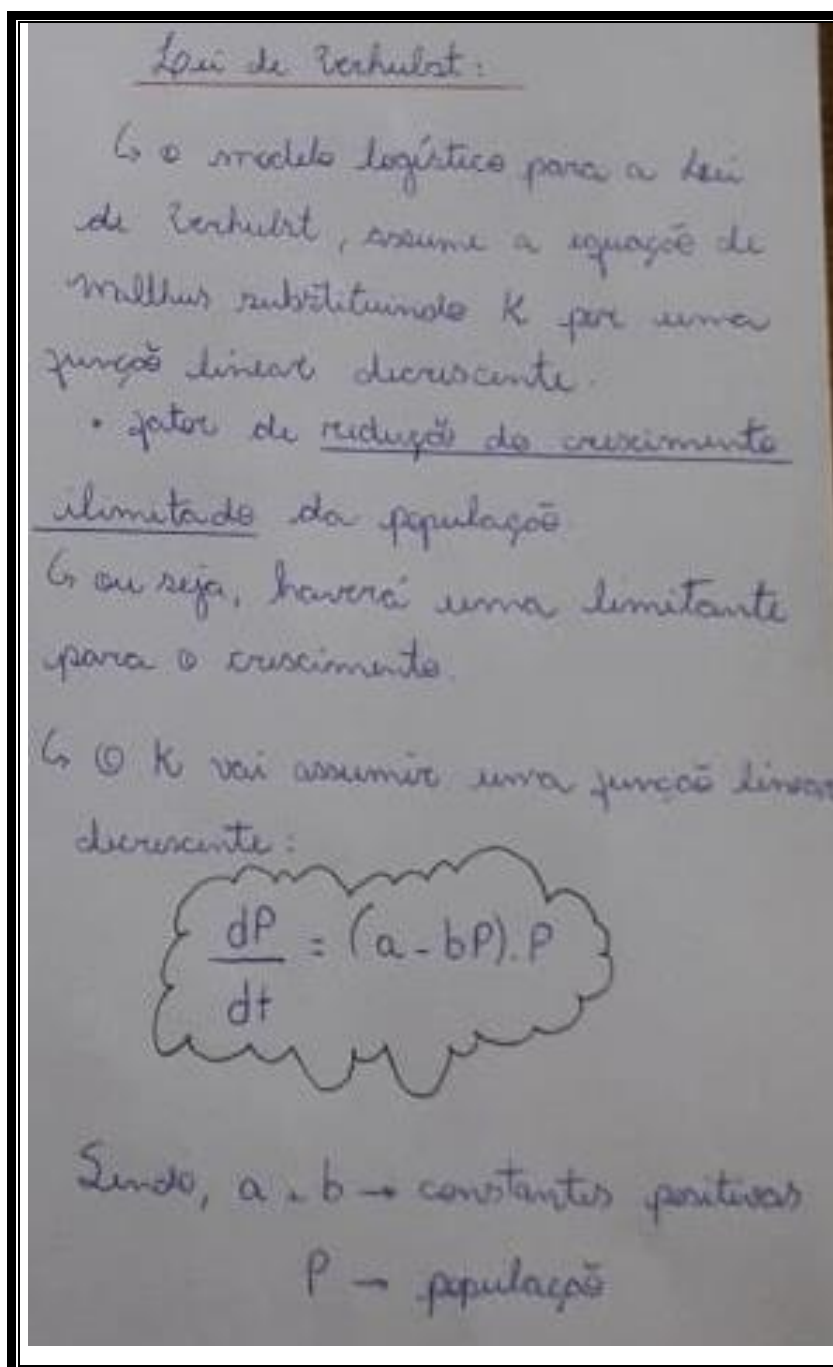 Lei de Verhulst:
↳ o modelo logístico para a Lei
de Verhulst, assume a equação de
Malthus substituindo K por uma
função linear decrescente.
• fator de redução do crescimento
ilimitado da população
↳ ou seja, haverá uma limitante
para o crescimento.
↳ O K vai assumir uma função linear
decrescente:
dP/dt = (a - bP).P
Sendo, a, b → constantes positivas
P → população